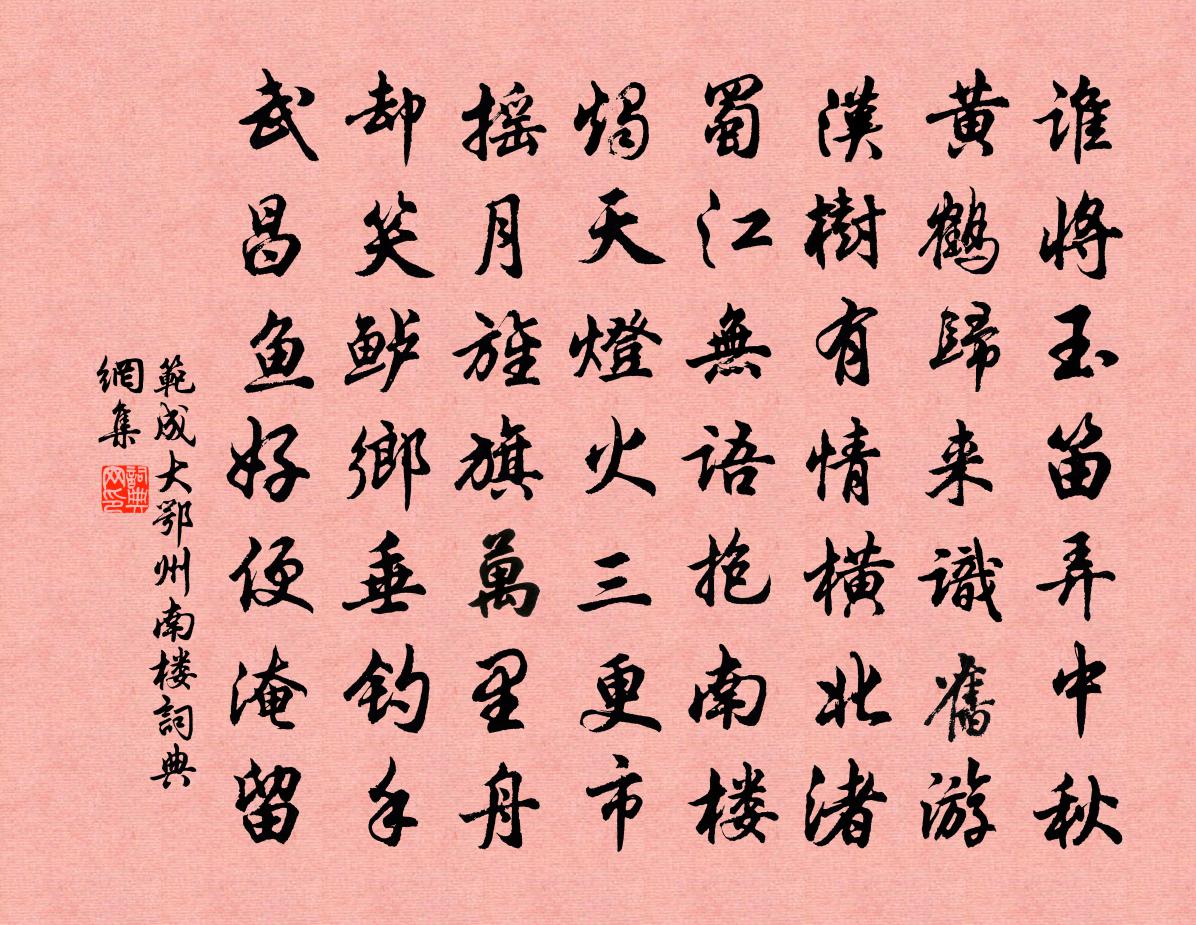 谁將玉笛弄中秋
黄鶴歸来識舊游
漢樹有情橫北渚
蜀江無語抱南楼
燭天燈火三更市
摇月旌旗萬里舟
却笑鲈鄉垂釣手
武昌鱼好便淹留
範成大鄂州南楼詞典
網集
詞典
网印